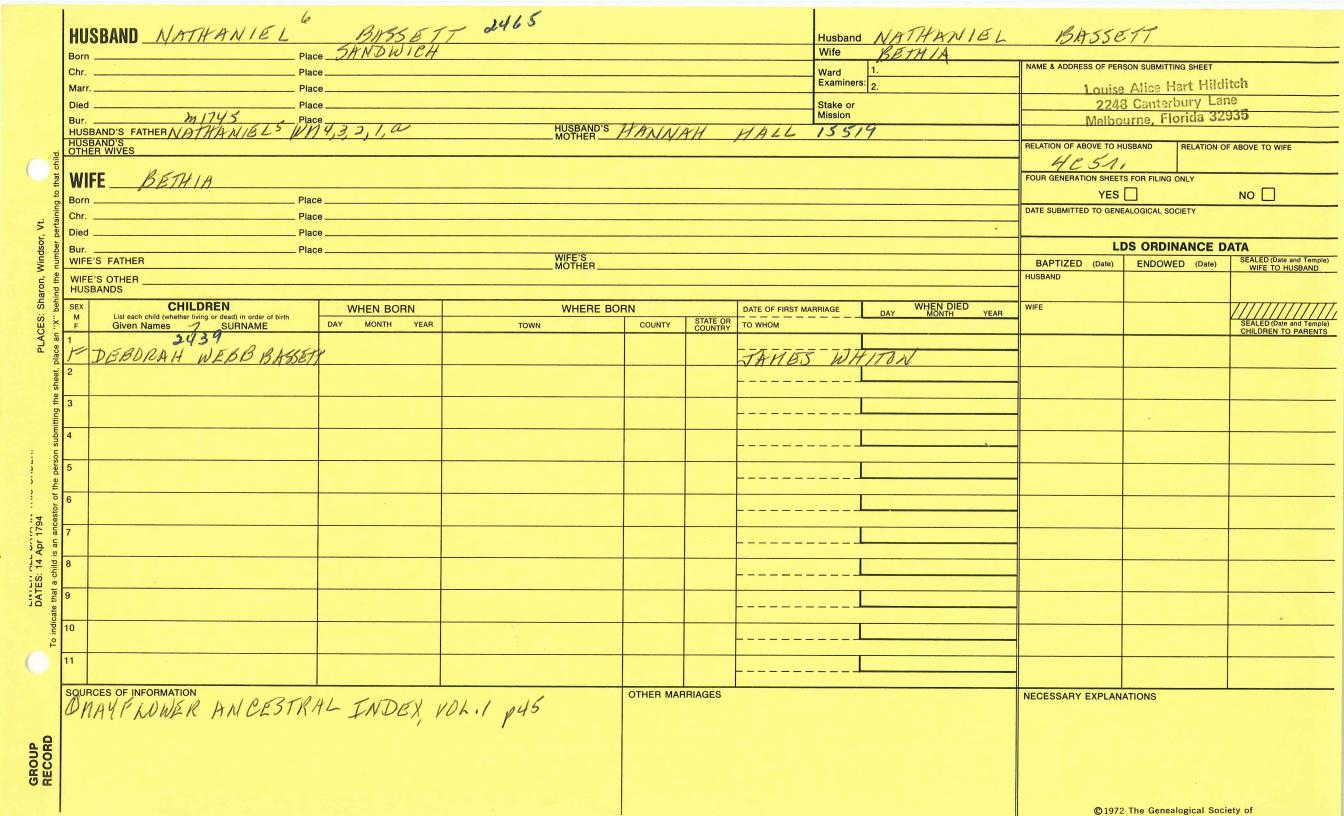 HUSBAND NATHANIEL 6 BASSETT 2465
Born Place SANDWICH
Chr. Place
Marr. Place
Died Place
Bur. m1745 Place
HUSBAND'S FATHER NATHANIEL5 Wm4,3,2,1,a HUSBAND'S MOTHER HANNAH HALL 15519
HUSBAND'S OTHER WIVES
WIFE BETHIA
Born Place
Chr. Place
Died Place
Bur. Place
WIFE'S FATHER WIFE'S MOTHER
WIFE'S OTHER HUSBANDS
Husband NATHANIEL BASSETT
Wife BETHIA
Ward Examiners: 1. 2.
Stake or Mission
NAME & ADDRESS OF PERSON SUBMITTING SHEET
Louise Alice Hart Hilditch
2248 Canterbury Lane
Melbourne, Florida 32935
RELATION OF ABOVE TO HUSBAND RELATION OF ABOVE TO WIFE
4C5r.
FOUR GENERATION SHEETS FOR FILING ONLY
YES NO
DATE SUBMITTED TO GENEALOGICAL SOCIETY
LDS ORDINANCE DATA
BAPTIZED (Date) ENDOWED (Date) SEALED (Date and Temple) WIFE TO HUSBAND
HUSBAND
WIFE
SEALED (Date and Temple) CHILDREN TO PARENTS
SEX M F CHILDREN WHEN BORN WHERE BORN DATE OF FIRST MARRIAGE WHEN DIED
List each child (whether living or dead) in order of birth
Given Names 7 SURNAME DAY MONTH YEAR TOWN COUNTY STATE OR COUNTRY TO WHOM DAY MONTH YEAR
2439
1 F DEBORAH WEBB BASSETT JAMES WHITON
2
3
4
5
6
7
8
9
10
11
SOURCES OF INFORMATION OTHER MARRIAGES NECESSARY EXPLANATIONS
① MAYFLOWER ANCESTRAL INDEX, VOL.1 p45
©1972 The Genealogical Society of
PLACES: Sharon, Windsor, Vt.
DATES: 14 Apr 1794
To indicate that a child is an ancestor of the person submitting the sheet, place an "X" behind the number pertaining to that child.
GROUP RECORD